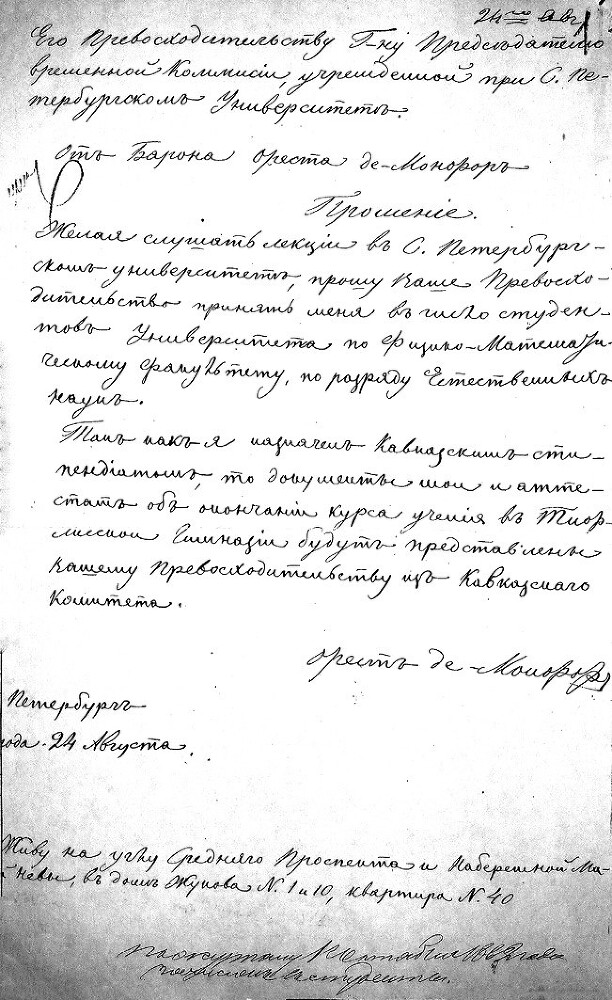 24го Авг
Его Превосходительству Г-ну Предсѣдателю
временной Коммисіи учрежденной при С. Пе-
тербургскомъ Университетѣ.
Отъ Барона Ореста де-Монфоръ
Прошеніе.
Желая слушать лекціи въ С. Петербург-
скомъ университетѣ, прошу Ваше Превосхо-
дительство принять меня въ число студен-
товъ Университета по Физико-Математи-
ческому факультету, по разряду Естественныхъ
наукъ.
Такъ какъ я назначенъ Кавказскимъ сти-
пендіатомъ, то документы мои и атте-
статъ объ окончаніи курса ученія въ Тиф-
лисской Гимназіи будутъ представлены
Вашему Превосходительству изъ Кавказскаго
Комитета.
Орестъ де-Монфоръ
Петербургъ
года. 24 Августа.
Живу на углу Средняго Проспекта и Набережной Ма-
й Невы, въ домѣ Жукова N. 1 и 10, квартира N. 40